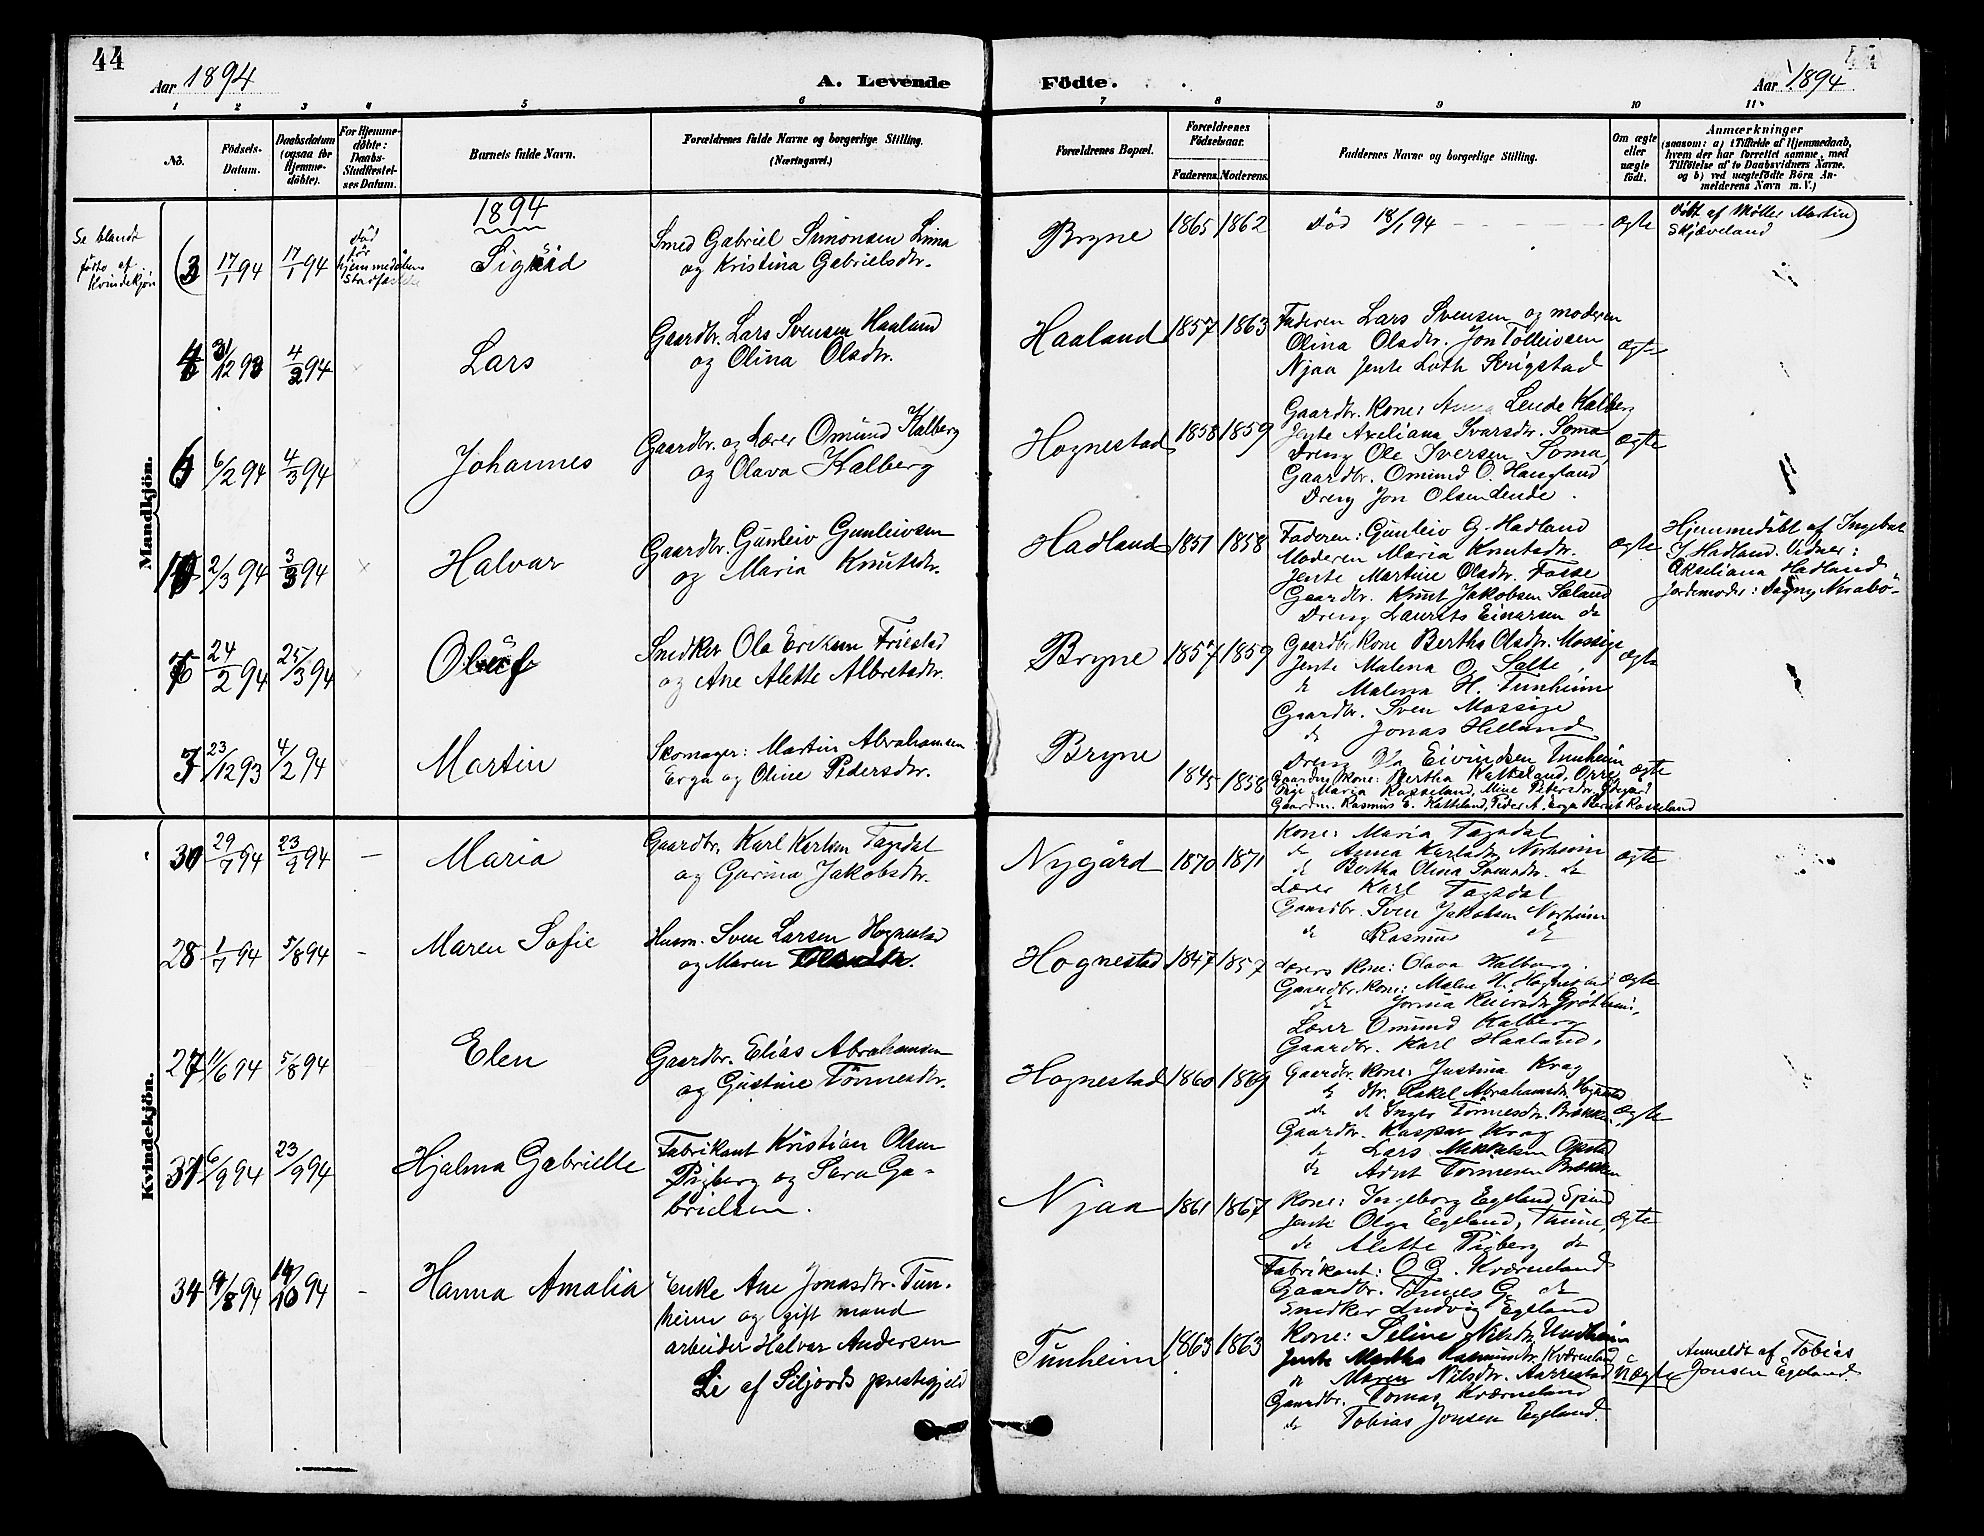 44
Aar 1894
A. Levende
Födte.
Aar 1894
1 2 3 4 5 6 7 8 9 10 11
No.
Födsels-
Datum.
Daabsdatum
(ogsaa for
Hjemme-
döbte).
For Hjemme-
döbte:
Daabs-
Stadfæstel-
ses Datum.
Barnets fulde Navn.
Forældrenes fulde Navne og borgerlige Stilling.
(Næringsvei.)
Forældrenes Bopæl.
Forældrenes
Födselsaar.
Faderens. Moderens.
Faddernes Navne og borgerlige Stilling.
Om ægte
eller
uægte
födt.
Anmærkninger
(saasom: a) i Tilfælde af Hjemmedaab,
hvem der har forrettet samme, med
Tilföielse af to Daabsvidners Navne.
og b) ved uægtefödte Börn An-
melderens Navn m. V.)
Mandkjön.
1894
Se blandt
födte af
Kvindekjön
3 17/1 94 17/1 94
död
för
hjemmedaabens
Stadfæstelse
Sigrid
Smed Gabriel Simonsen Lima
og Kristina Gabrielsdtr.
Bryne 1865 1862
Död 18/1 94
ægte
Döbt af Möller Martin
Skjæveland
4 31/12 93 4/2 94 Lars
Gaardbr. Lars Svensen Haaland
og Olina Olsdtr.
Haaland 1857 1863
Faderen Lars Svensen og moderen
Olina Olsdtr. Jon Tolleivsen
Njaa Jente Loth Svigstad
ægte
6/2 94 4/3 94 Johannes
Gaardbr. og Lærer Omund Kalberg
og Olava Kalberg
Hognestad 1858 1859
Gaardbr. Kone: Anna Lende Kalberg
Jente Axeliana Ivarsdtr. Soma
Dreng Ole Iversen Soma
Gaardbr. Omund O. Haugland
Dreng Jon Olsen Lende.
ægte
2/3 94 3/3 94 Halvar
Gaardbr. Gunleiv Gunleivsen
og Maria Knutsdtr.
Hadland 1851 1858
Faderen: Gunleiv G. Hadland
Moderen Maria Knutsdtr.
Jente Martine Olsdtr. Fosse
Gaardbr. Knut Jakobsen Sæland
Dreng Laurits Einarsen do
ægte
Hjemmedöbt af Ingebret
J. Hadland. Vidner:
Akseliana Hadland
Jordemoder: Dagny Nærabö
24/2 94 25/3 94 Oluf
Snedker Ole Eriksen Friestad
og Ane Alette Albretsdtr.
Bryne 1857 1859
Gaardbr. Kone Bertha Olsdtr. Mossige
Jente Malena O. Salte,
do Malena H. Tunheim
Gaardbr. Sven Mossige
do Jonas Helland
Dreng Ola Eivindsen Tunheim
ægte
23/12 93 4/2 94 Martin
Skomager: Martin Abrahamsen
Erga og Oline Pedersdtr.
Bryne 1845 1858
Gaardm. Kone: Bertha Katteland, Orre
Pige Maria Rosseland, Mine Pedersdtr.
Gaardm. Rasmus E. Katteland, Peder A. Erga Rosseland
ægte
Kvindekjön.
30 29/7 94 23/9 94 – Maria
Gaardbr. Karl Karlsen Tagsdal
og Gurina Jakobsdtr.
Nygård 1870 1871
Kone: Maria Tagsdal
do Anna Karlsdtr Norheim
do Bertha Olina Svensdtr. do
Lærer Karl Tagsdal
Gaardbr. Sven Jakobsen Norheim
do Rasmus do
ægte
28 1/7 94 5/8 94 – Maren Sofie
Husm. Sven Larsen Hognestad
og Maren
Hognestad 1847 1857
Lærers Kone: Olava Kalberg.
Gaardbr. Kone: Malen H. Hognestad
do
Lærer Omund Kalberg
Gaardbr. Karl Haaland.
ægte
27 11/6 94 5/8 94 Elen
Gaardbr. Elias Abrahamsen
og Gustine Tönnesdtr.
Hognestad 1860 1869
Gaardbr. Kone: Justina Krag
do Rakel Abrahamsdtr Hognestad
do do Inger Tönnesdtr. Brække
Gaardbr. Kaspar Krag
do Lars Mikkelsen Opstad
do Adnt Tönnesen Brække
ægte
31 6/9 94 23/9 94 Hjalma Gabrielle
Fabrikant Kristian Olsen
Pigberg og Sara Ga-
brielsen.
Njaa 1861 1867
Kone: Ingeborg Egeland Spind
Jente Olga Egeland, Time,
do Alette Pigberg do
Fabrikant: O. G. Kværneland
Gaardbr. Tönnes G. do
Snedker Ludvig Egeland
ægte
34 9/8 94 14/10 94 – Hanna Amalia
Enke Ane Jonasdtr. Tun-
heim og gift mand
arbeider Halvar Andersen
Lie af Siljords prestegjeld
Tunheim 1863 1863
Kone: Seline Nilsdtr. Undheim
Jente Martha Rasmusdtr. Kværneland
" Maren Nilsdtr. Aarrestad
Gaardbr. Tomas Kværneland
do Tobias Jonsen Egeland.
Uægte
Anmeldt af Tobias
Jonsen Egeland.